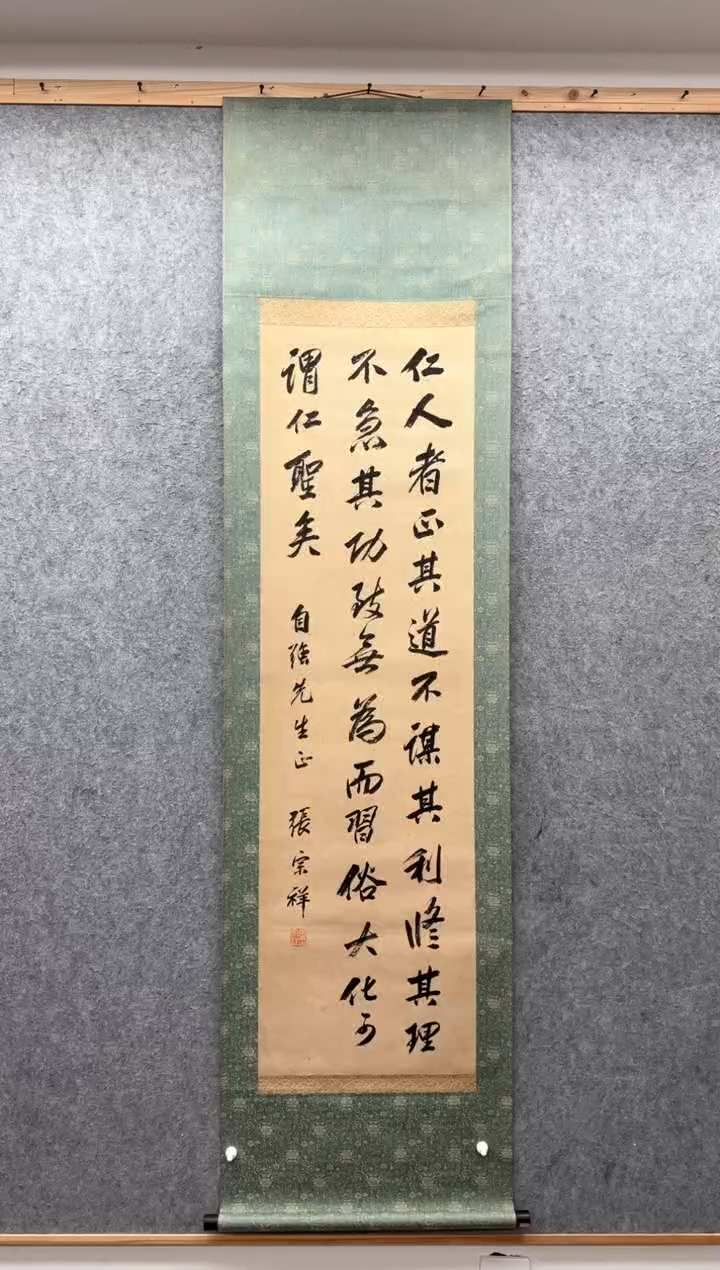 仁人者正其道不謀其利脩其理
不急其功致無為而習俗大化可
謂仁聖矣
自強先生正
張宗祥